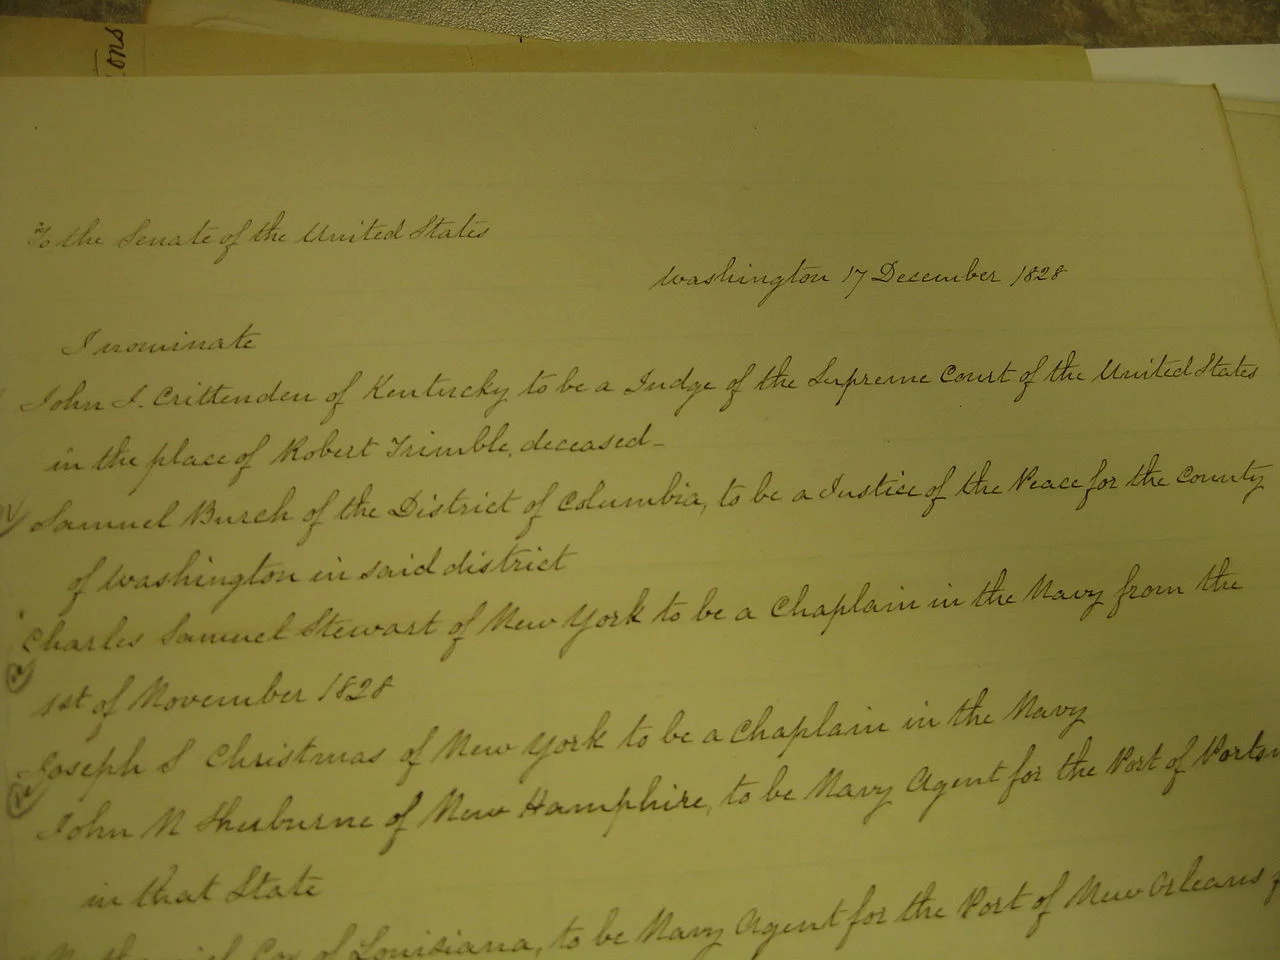 ons
To the Senate of the United States
Washington 17 December 1828
I nominate
John J. Crittenden of Kentucky to be a Judge of the Supreme Court of the United States
in the place of Robert Trimble, deceased_
Samuel Burch of the District of Columbia, to be a Justice of the Peace for the County
of Washington in said district
Charles Samuel Stewart of New York to be a Chaplain in the Navy from the
1st of November 1828
Joseph S Christmas of New York to be a Chaplain in the Navy
John N Sherburne of New Hampshire, to be Navy Agent for the Port of Ports
in that State
Cox of Louisiana, to be Navy Agent for the Port of New Orleans